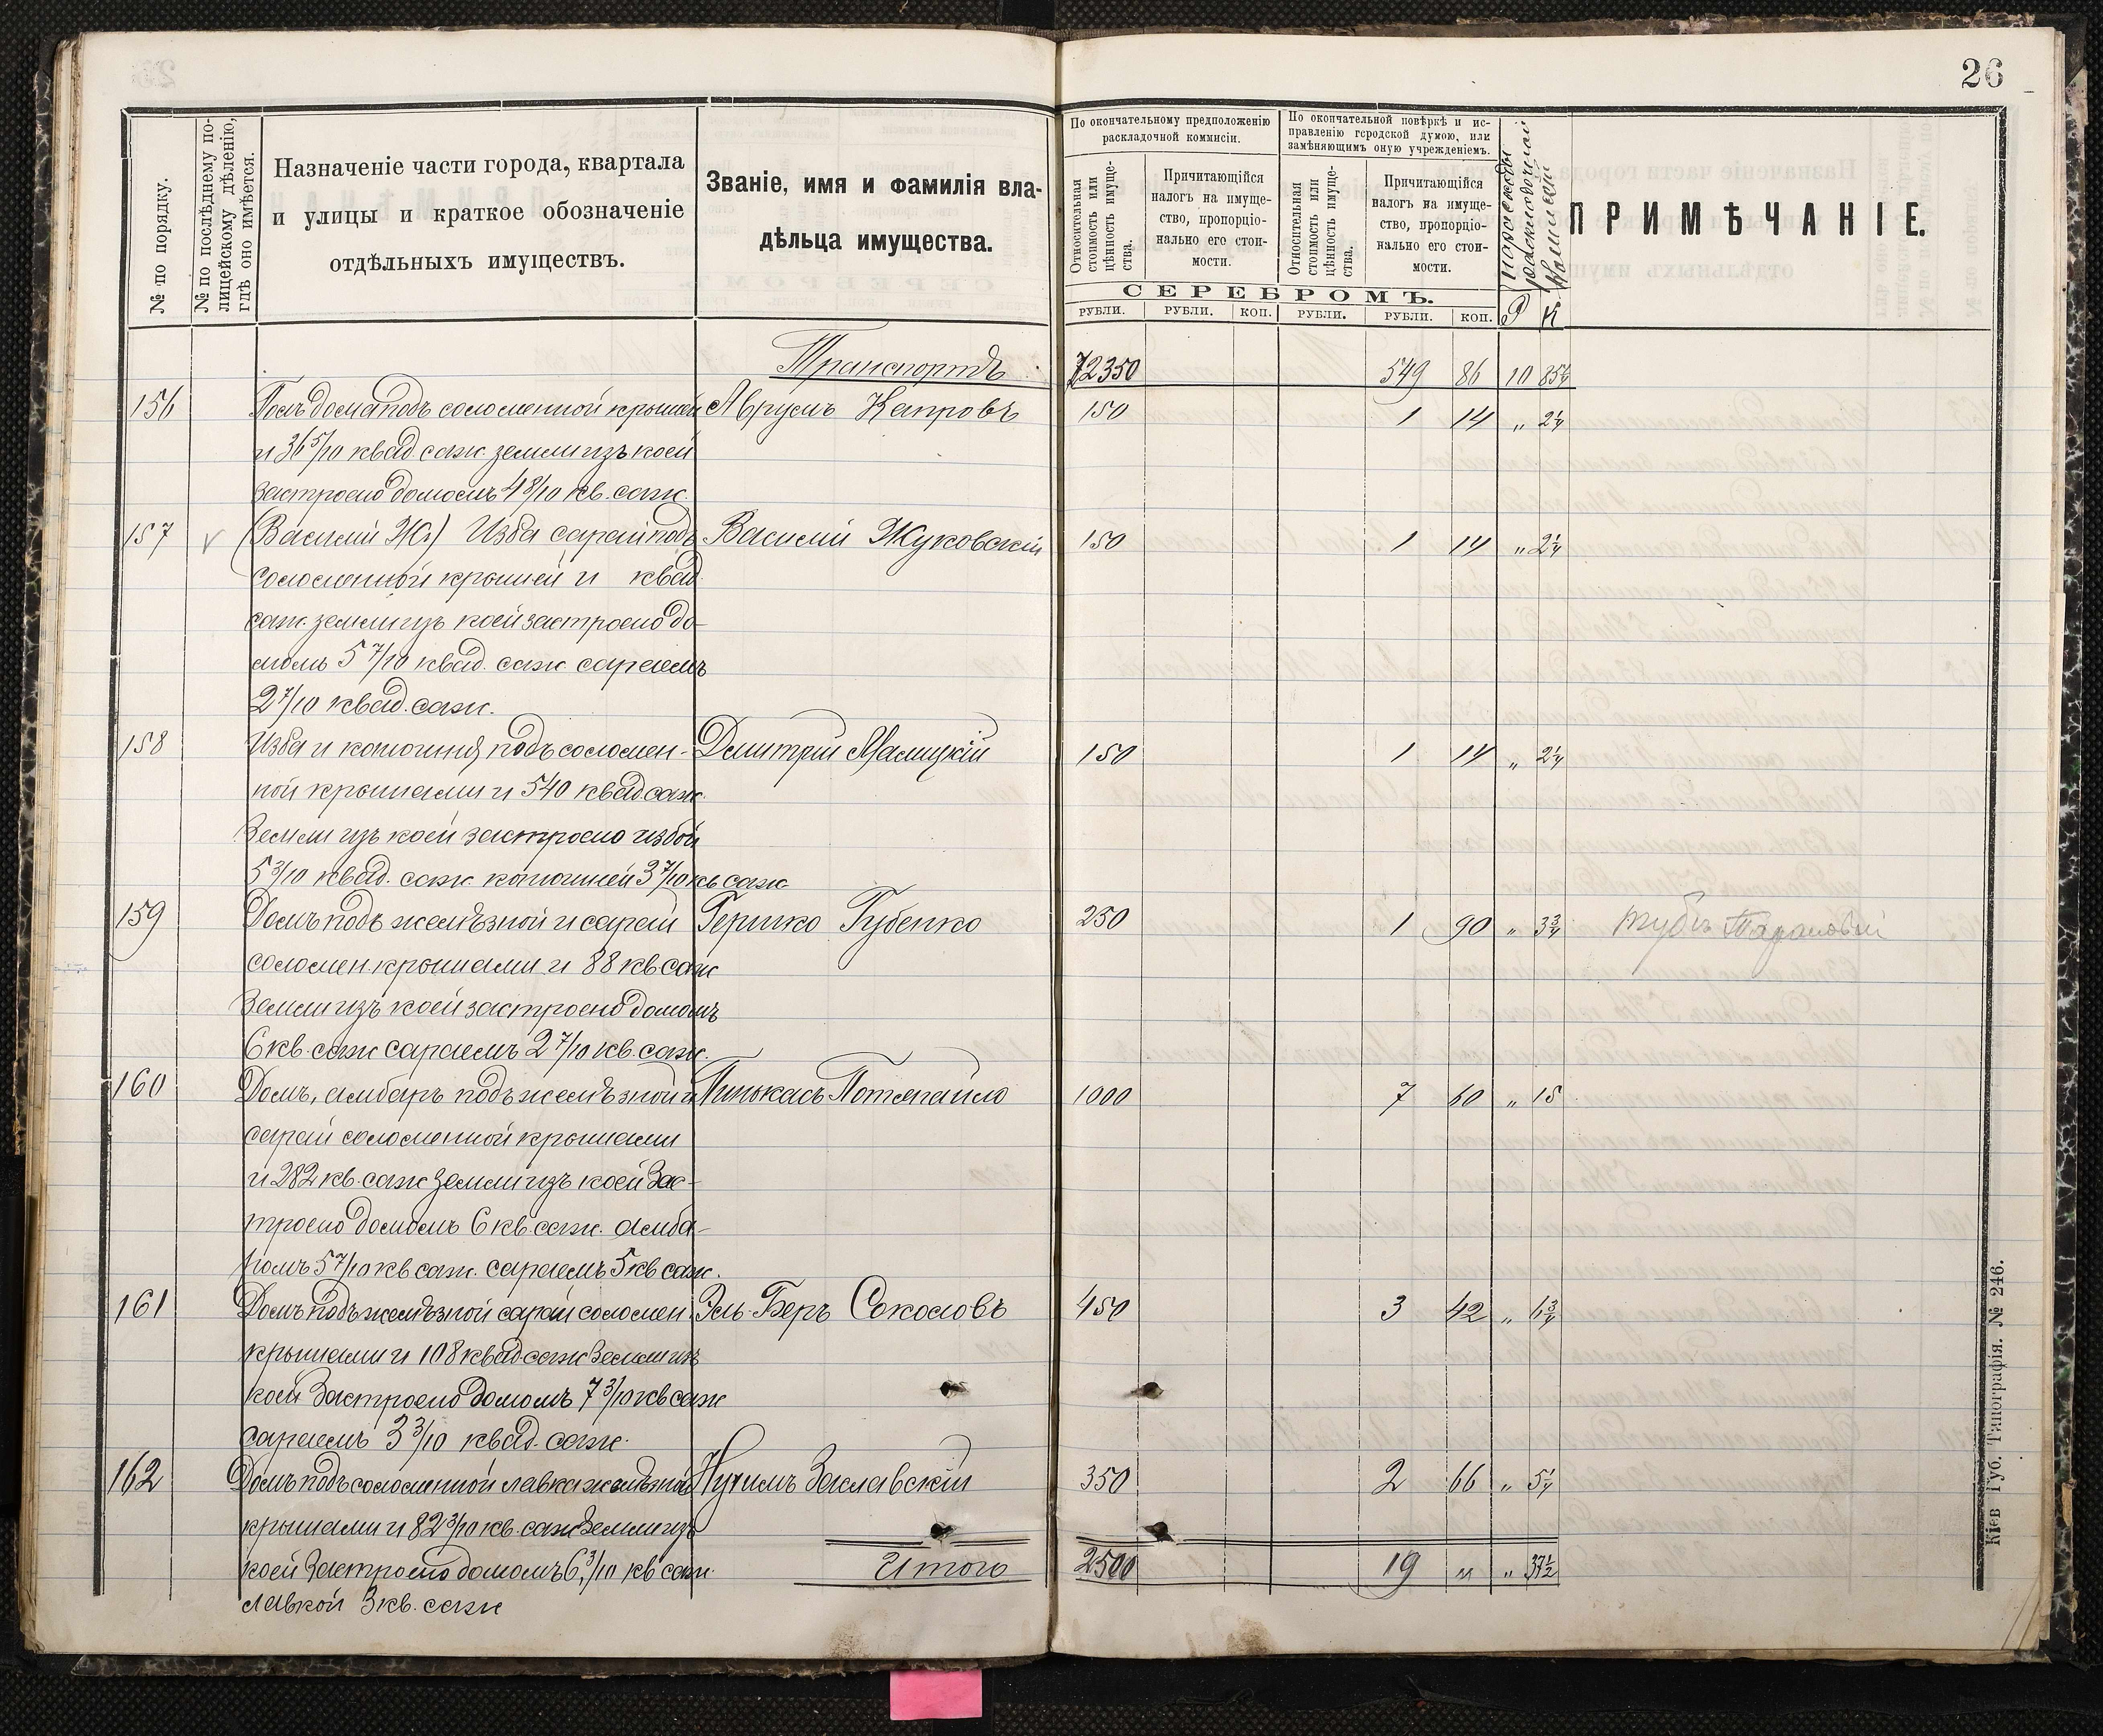 26
№ по порядку.
№ по послѣднему по-
лицейскому дѣленію,
гдѣ оно имѣется.
Назначеніе части города, квартала
и улицы и краткое обозначеніе
отдѣльныхъ имуществъ.
Званіе, имя и фамилія вла-
дѣльца имущества.
По окончательному предположенію
раскладочной коммисіи.
Относительная
стоимость или
цѣнность имуще-
ства.
Причитающійся
налогъ на имуще-
ство, пропорціо-
нально его стои-
мости.
По окончательной повѣркѣ и ис-
правленію городской думою, или
замѣняющимъ оную учрежденіемъ.
Относительная
стоимость или
цѣнность имуще-
ства.
Причитающійся
налогъ на имуще-
ство, пропорціо-
нально его стои-
мости.
На расходы
раскладочной
Коммисіи
ПРИМѢЧАНІЕ.
СЕРЕБРОМЪ.
РУБЛИ. РУБЛИ. КОП. РУБЛИ. РУБЛИ. КОП. Р К
Транспортъ 72350 549 86 10 85¼
156 Полъ дома подъ соломенной крышей Аврумъ Капровъ 150 1 14 „ 2¼
и 36 5/10 квад. саж. земли изъ коей
застроено домомъ 4 8/10 кв. саж.
157 (Василій Ж.) Изба сарай подъ Василій Жуковскій 150 1 14 „ 2¼
соломенной крышей и квад.
саж. земли изъ коей застроено до-
момъ 5 7/10 квад. саж. сараемъ
2 7/10 квад. саж.
158 Изба и конюшня подъ соломен- Дмитрій 150 1 14 „ 2¼
ной крышами и 540 квад. саж.
земли изъ коей застроено избой
5 3/10 квад. саж. конюшней 3 7/10 кв саж
159 Домъ подъ желѣзной и сарай Гершко Губенко 250 1 90 „ 3¾
соломен. крышами и 88 кв саж
земли изъ коей застроено домомъ
6 кв. саж сараемъ 2 7/10 кв. саж.
160 Домъ, амбаръ подъ желѣзной и Пинькасъ Потапайло 1000 7 60 „ 15
сарай соломенной крышами
и 282 кв. саж земли изъ коей зас-
троено домомъ 6 кв. саж. амба-
ромъ 5 7/10 кв саж. сараемъ 5 кв саж.
161 Домъ подъ желѣзной сарай соломен. Эль-Беръ Соколовъ 450 3 42 „ 6¾
крышами и 108 квад. саж земли изъ
коей застроено домомъ 7 3/10 кв саж
сараемъ 3 3/10 квад. саж.
162 Домъ подъ соломенной лавка желѣзной Нухимъ Заславскій 350 2 66 „ 5¼
крышами и 82 3/10 кв. саж земли изъ
коей застроено домомъ 6 3/10 кв саж.
Итого 2500 19 „ „ 37½
лавкой 3 кв. саж
Кіев Губ. Типографія. № 246.